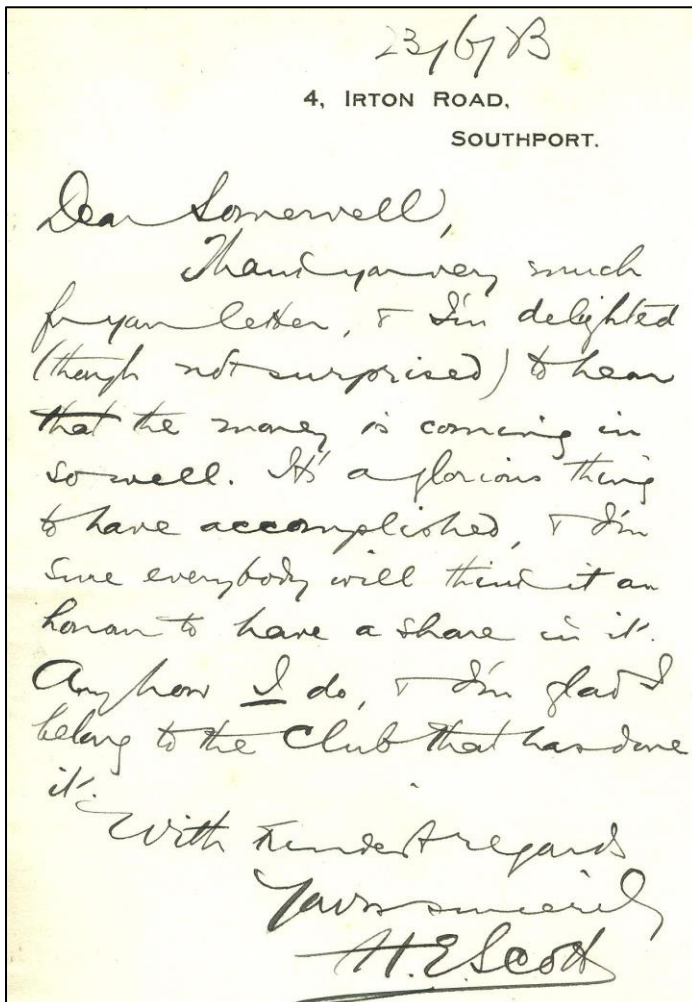 23/6/23
4, IRTON ROAD,
SOUTHPORT.
Dear Somervell,
Thank you very much
for your letter, & I'm delighted
(though not surprised) to hear
that the money is coming in
so well. It's a glorious thing
to have accomplished, & I'm
sure everybody will think it an
honour to have a share in it.
Anyhow I do, & I'm glad I
belong to the Club that has done
it.
With kindest regards
Yours sincerely
H.E. Scott